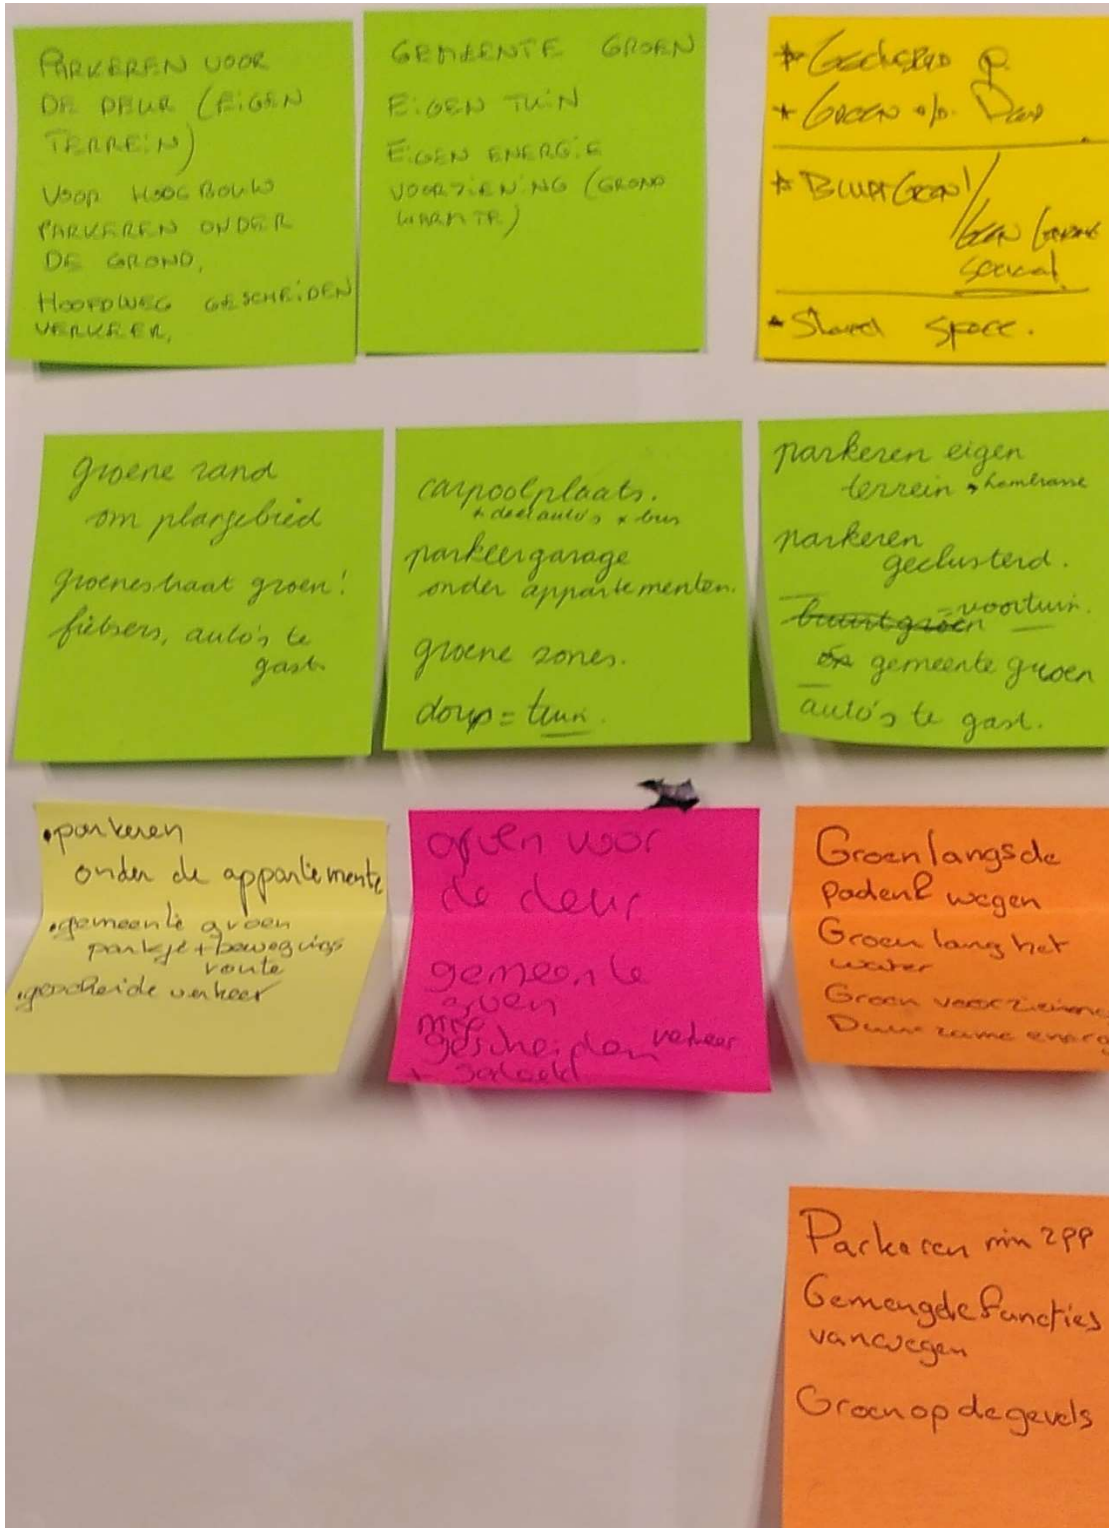 PARKEREN VOOR
DE DEUR (EIGEN
TERREIN)
VOOR HOOGBOUW
PARKEREN ONDER
DE GROND,
HOOFDWEG GESCHEIDEN
VERKEER,
GEMEENTE GROEN
EIGEN TUIN
EIGEN ENERGIE
VOORZIENING (GROND
WARMTE)
* P.
* GROEN o/d.
*
GEEN
sociaal
* Shared space.
groene rand
om plangebied
groenestraat groen!
fietsers, auto's te
gast
carpoolplaats.
+ deelauto's + bus
parkeergarage
onder appartementen.
groene zones.
dorp = tuin.
parkeren eigen
terrein
parkeren
geclusterd.
buurtgroen = voortuin.
gemeente groen
auto's te gast.
• parkeren
onder de appartemente
• gemeente groen
parkje + bewegings
route
• gescheide verkeer
groen voor
de deur
gemeente
groen
gescheiden verkeer
+
Groen langs de
paden & wegen
Groen lang het
water
Groen voorziening
Duurzame energ
Parkeren min 2pp
Gemengde functies
van wegen
Groen op de gevels